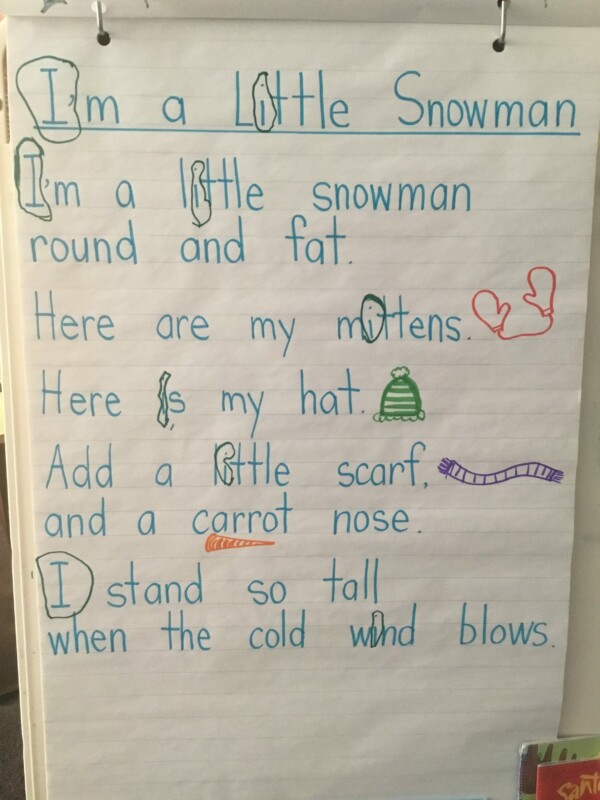 I'm a Little Snowman
I'm a little snowman
round and fat.
Here are my mittens.
Here is my hat.
Add a little scarf,
and a carrot nose.
I stand so tall
when the cold wind blows.